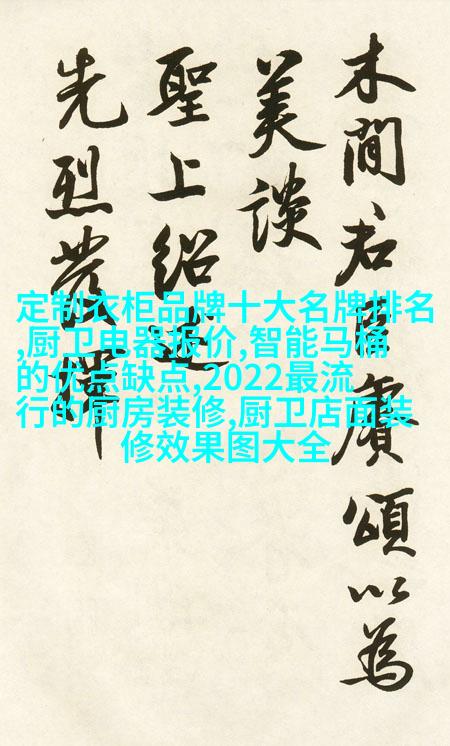 木間君臣賡頌以為
美談
聖上紹述
先烈發揮
定制衣柜品牌十大名牌排名
,厨卫电器报价,智能马桶
的优点缺点,2022最流
行的厨房装修,厨卫店面装
修效果图大全